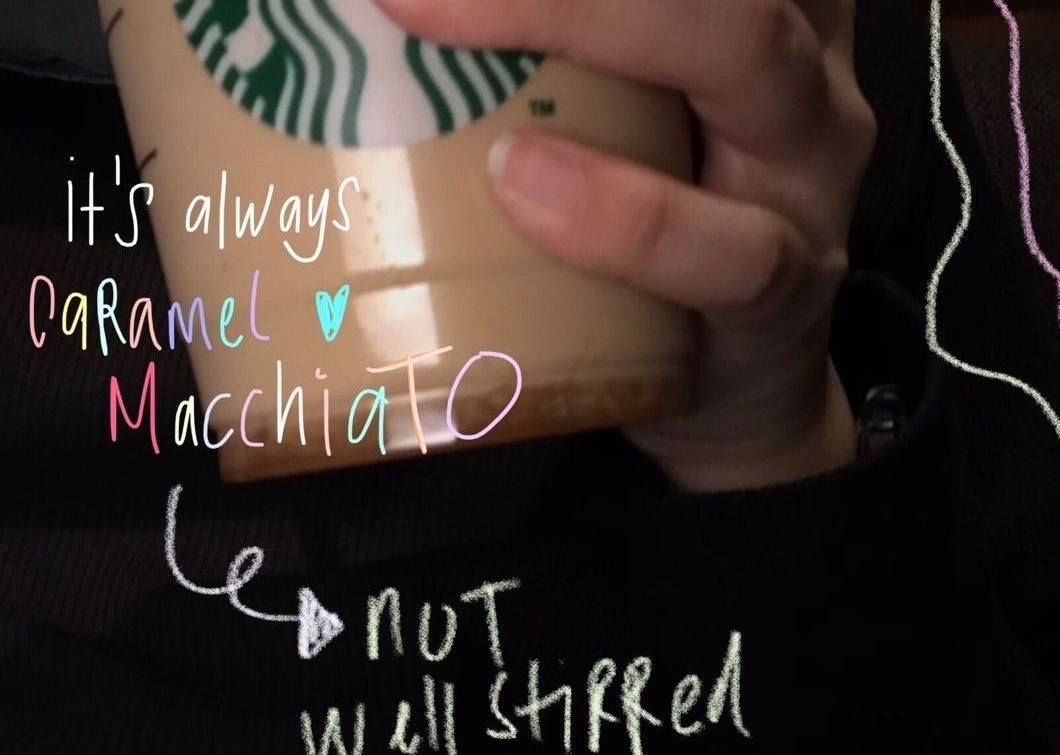 TM
it's always
CaRamel
MacchiaTO
noT
well stiRRed